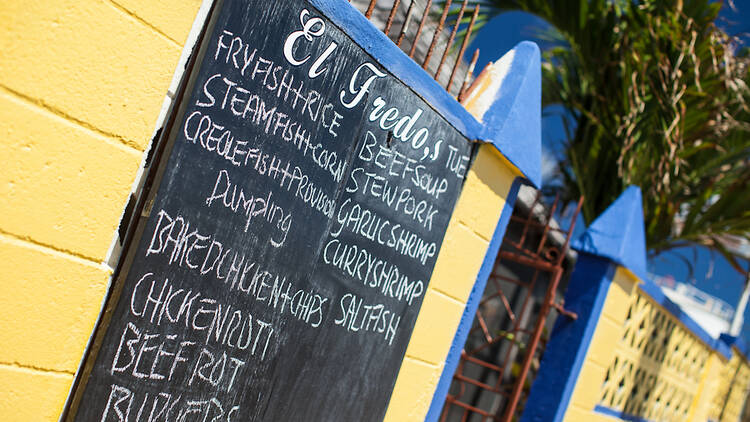 El Fredo,s TUE
FRYFISH+RICE
STEAMFISH+CORN
CREOLEFISH+PROVISION
DUMPLING
BAKEDCHICKEN+CHIPS
CHICKENROTI
BEEF ROT
BURGERS
BEEFSOUP
STEWPORK
GARLICSHRIMP
CURRYSHRIMP
SALTFISH